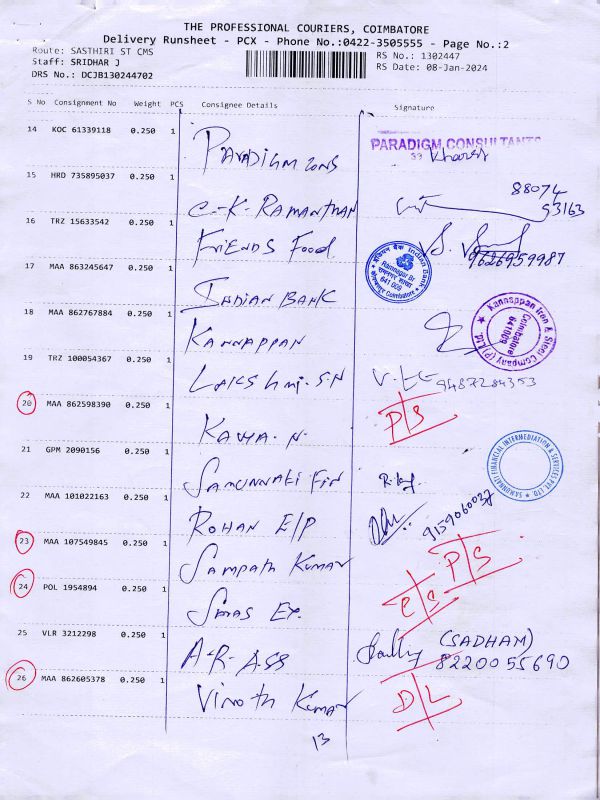 THE PROFESSIONAL COURIERS, COIMBATORE
Delivery Runsheet - PCX - Phone No.:0422-3505555 - Page No.:2
Route: SASTHIRI ST CMS
RS No.: 1302447
Staff: SRIDHAR J
RS Date: 08-Jan-2024
DRS No.: DCJB130244702
S No Consignment No Weight PCS Consignee Details Signature
14 KOC 61339118 0.250 1 PARADIGM CONS PARADIGM CONSULTANTS
33
15 HRD 735895037 0.250 1 C-K-RAMANTHAN 88074
93163
16 TRZ 15633542 0.250 1 FRIENDS Food 9626959987
17 MAA 863245647 0.250 1 INDIAN BANK इंडियन बैंक Indian Bank
Ramnagar Br
641 009
Coimbatore
18 MAA 862767884 0.250 1 KANNAPPAN Kannappan Iron & Steel Company (P) Ltd.
Coimbatore
641009
19 TRZ 100054367 0.250 1 LAKShmi.S.N 9487284353
20 MAA 862598390 0.250 1 KAVYA.N. P/S
21 GPM 2090156 0.250 1 SAMUNNATI FIN SAMUNNATI FINANCIAL INTERMEDIATION & SERVICES PVT. LTD.
22 MAA 101022163 0.250 1 ROHAN E/P 9159060037
23 MAA 107549845 0.250 1 SAmpath Kumar P/S
24 POL 1954894 0.250 1 C/S
25 VLR 3212298 0.250 1 A-R-ASS (SADHAM)
8220055690
26 MAA 862605378 0.250 1 Vinoth Kumar D/L
13